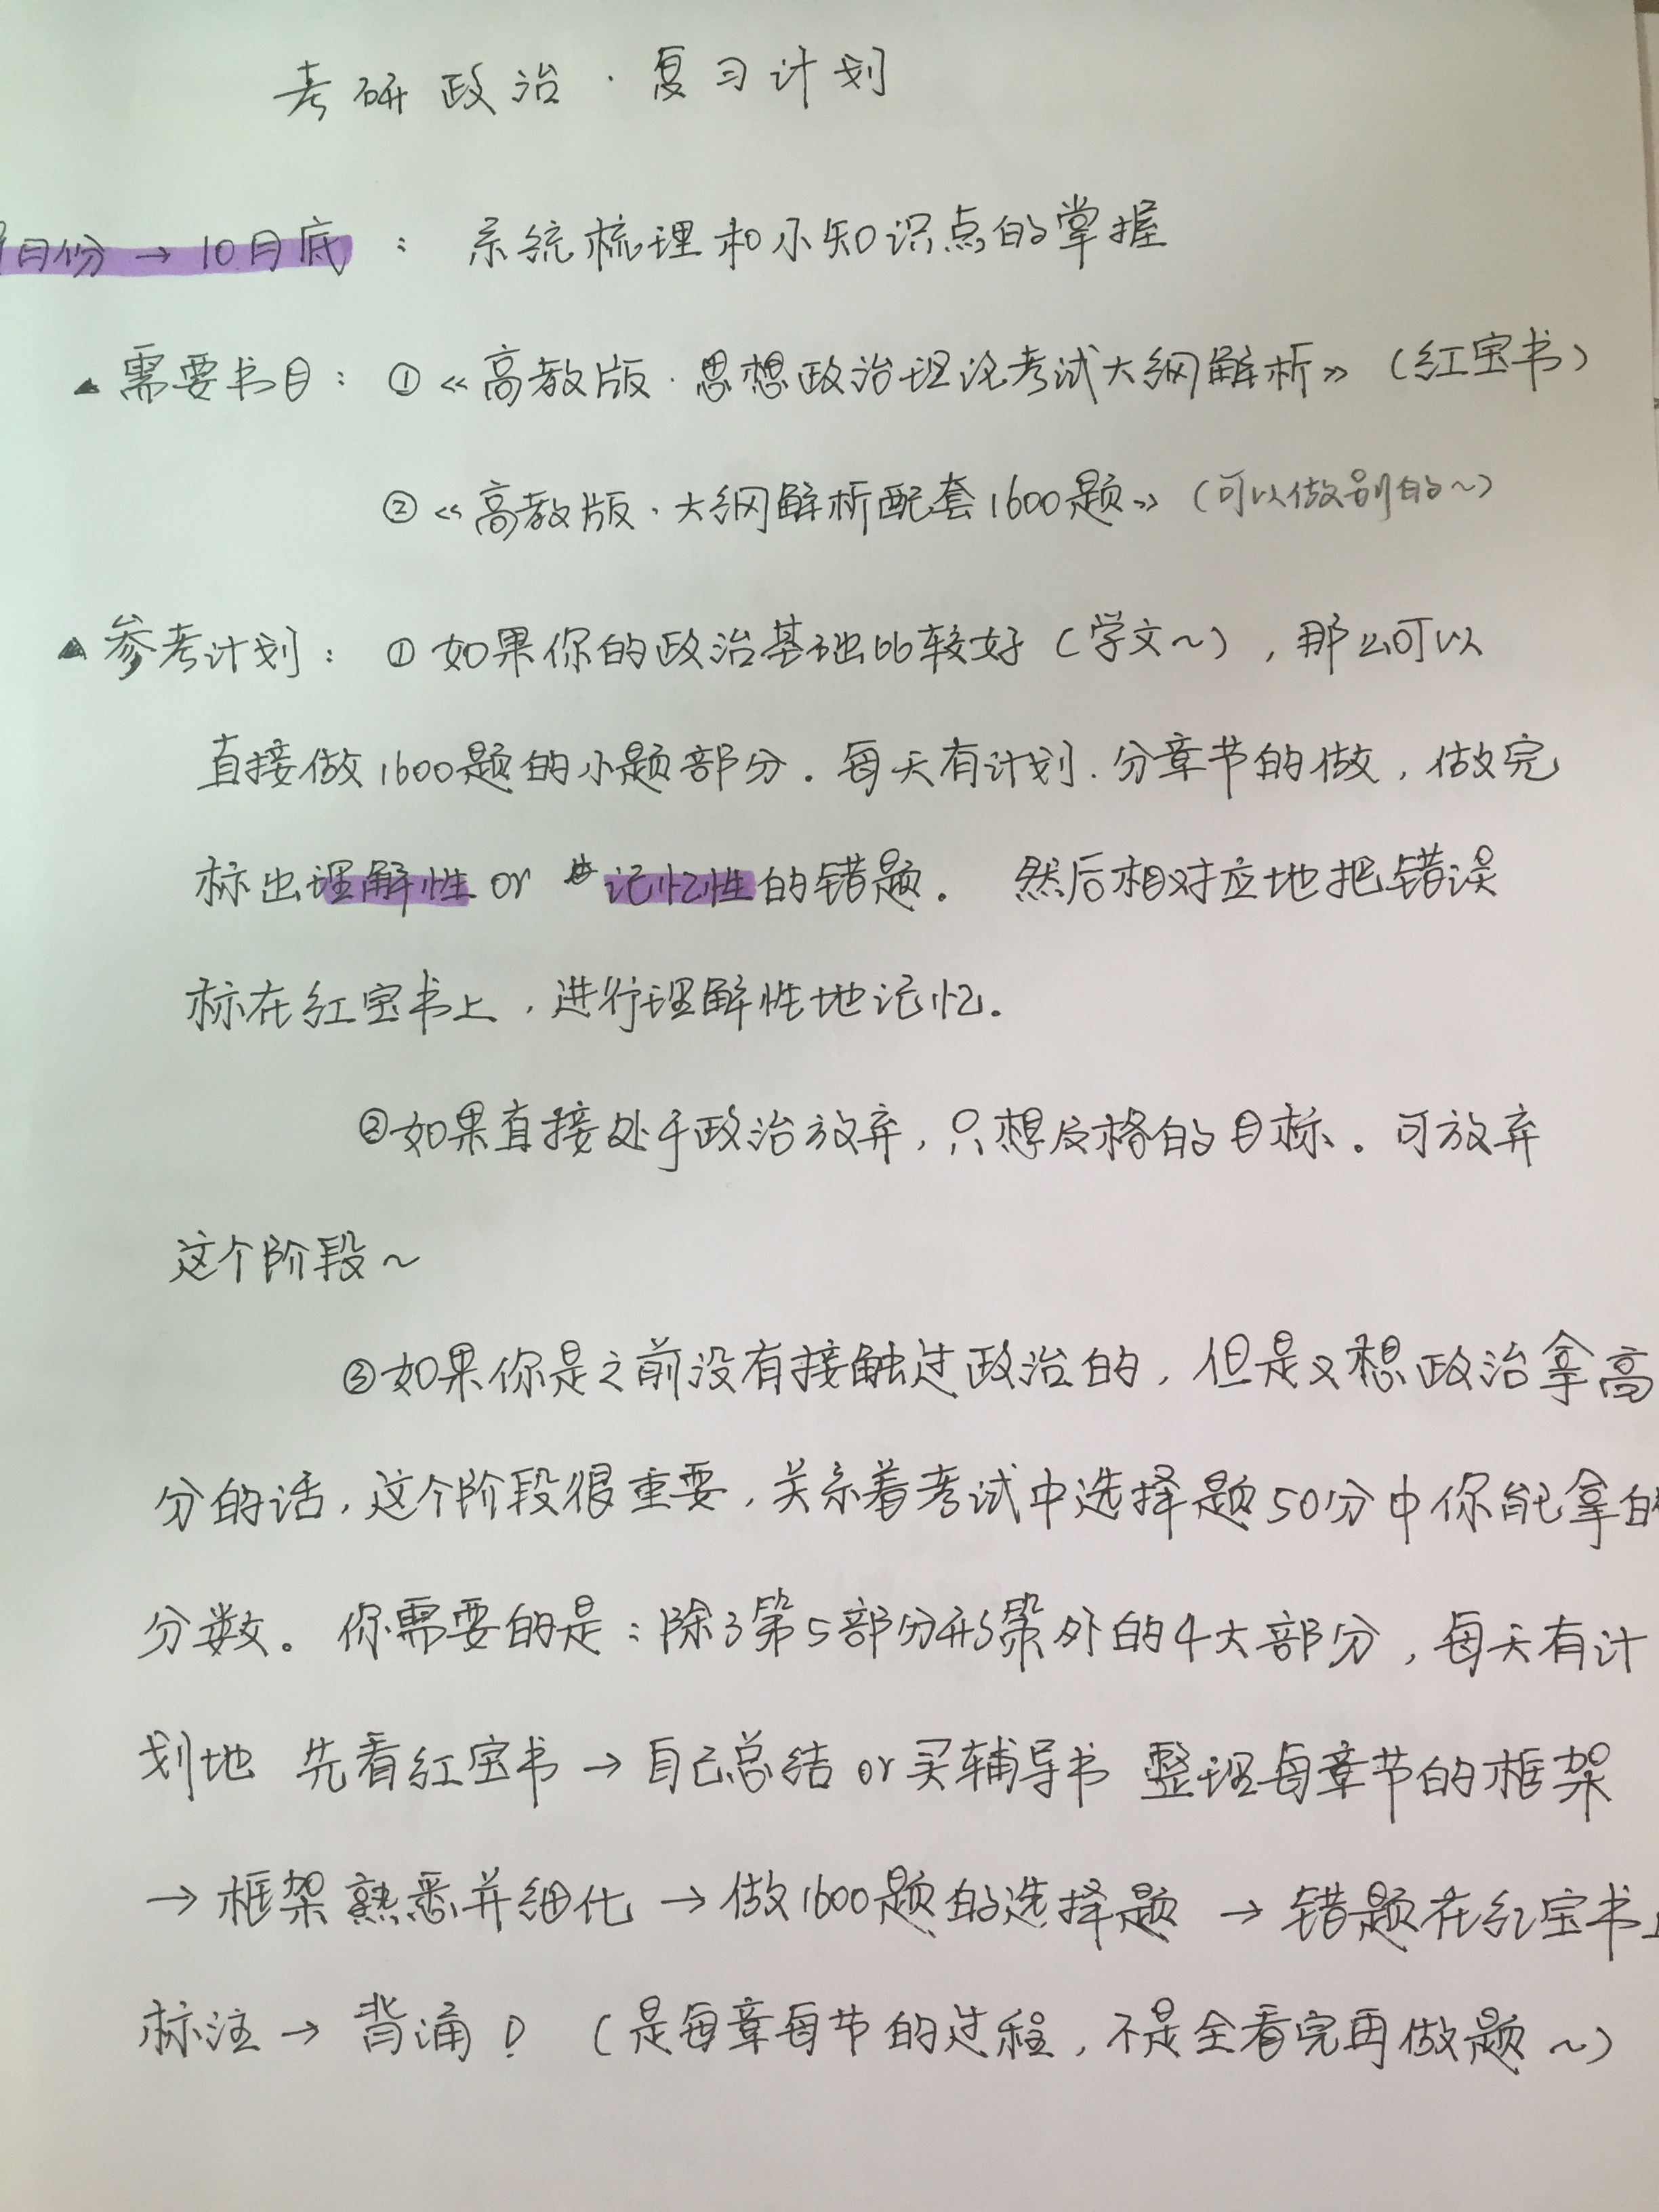 考研政治·复习计划
月份→10月底：系统梳理和小知识点的掌握
▲需要书目：①《高教版·思想政治理论考试大纲解析》（红宝书）
②《高教版·大纲解析配套1600题》（可以做别的~）
▲参考计划：①如果你的政治基础比较好（学文~），那么可以
直接做1600题的小题部分.每天有计划.分章节的做，做完
标出理解性or 记忆性的错题。然后相对应地把错误
标在红宝书上，进行理解性地记忆。
②如果直接处于政治放弃，只想及格的目标。可放弃
这个阶段~
③如果你是之前没有接触过政治的，但是又想政治拿高
分的话，这个阶段很重要，关系着考试中选择题50分中你能拿的
分数。你需要的是：除了第5部分形策外的4大部分，每天有计
划地 先看红宝书→自己总结or买辅导书 整理每章节的框架
→框架熟悉并细化→做1600题的选择题→错题在红宝书上
标注→背诵！（是每章每节的过程，不是全看完再做题~）